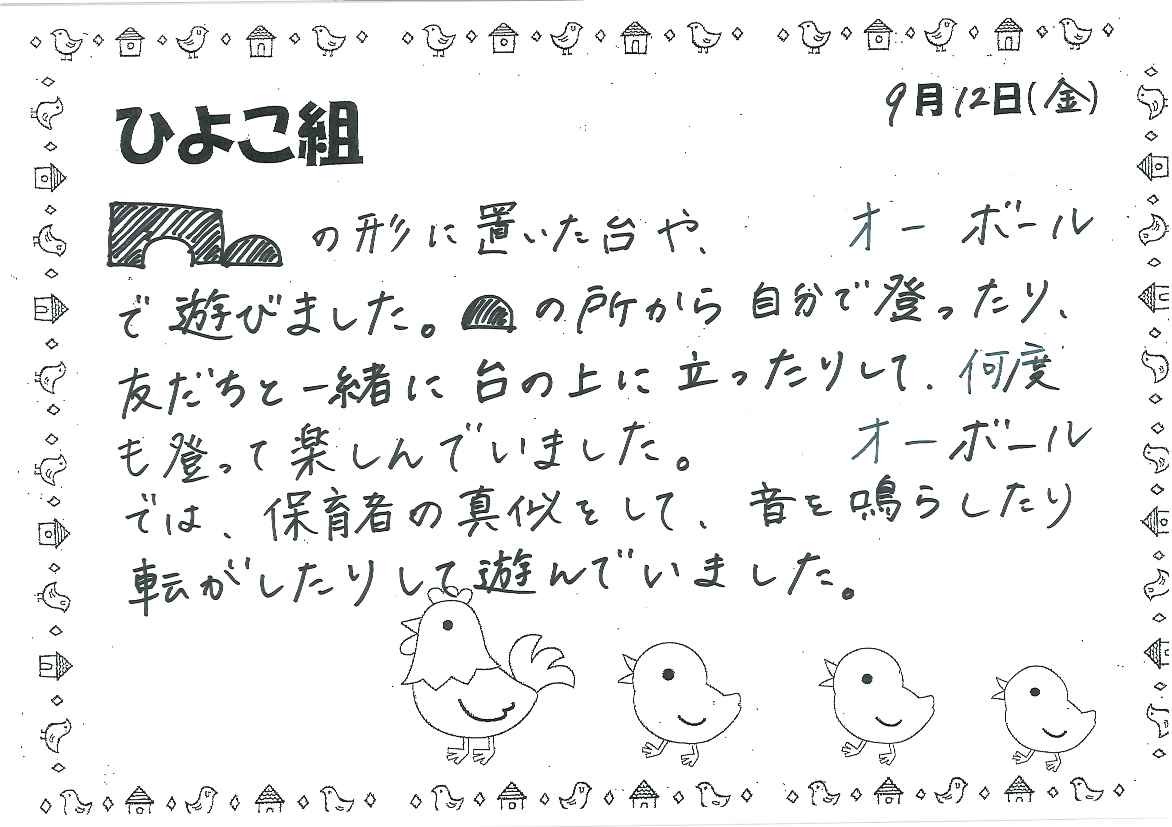 9月12日(金)
ひよこ組
の形に置いた台や、 オーボール
で遊びました。の所から自分で登ったり、
友だちと一緒に台の上に立ったりして、何度
も登って楽しんでいました。 オーボール
では、保育者の真似をして、音を鳴らしたり
転がしたりして遊んでいました。